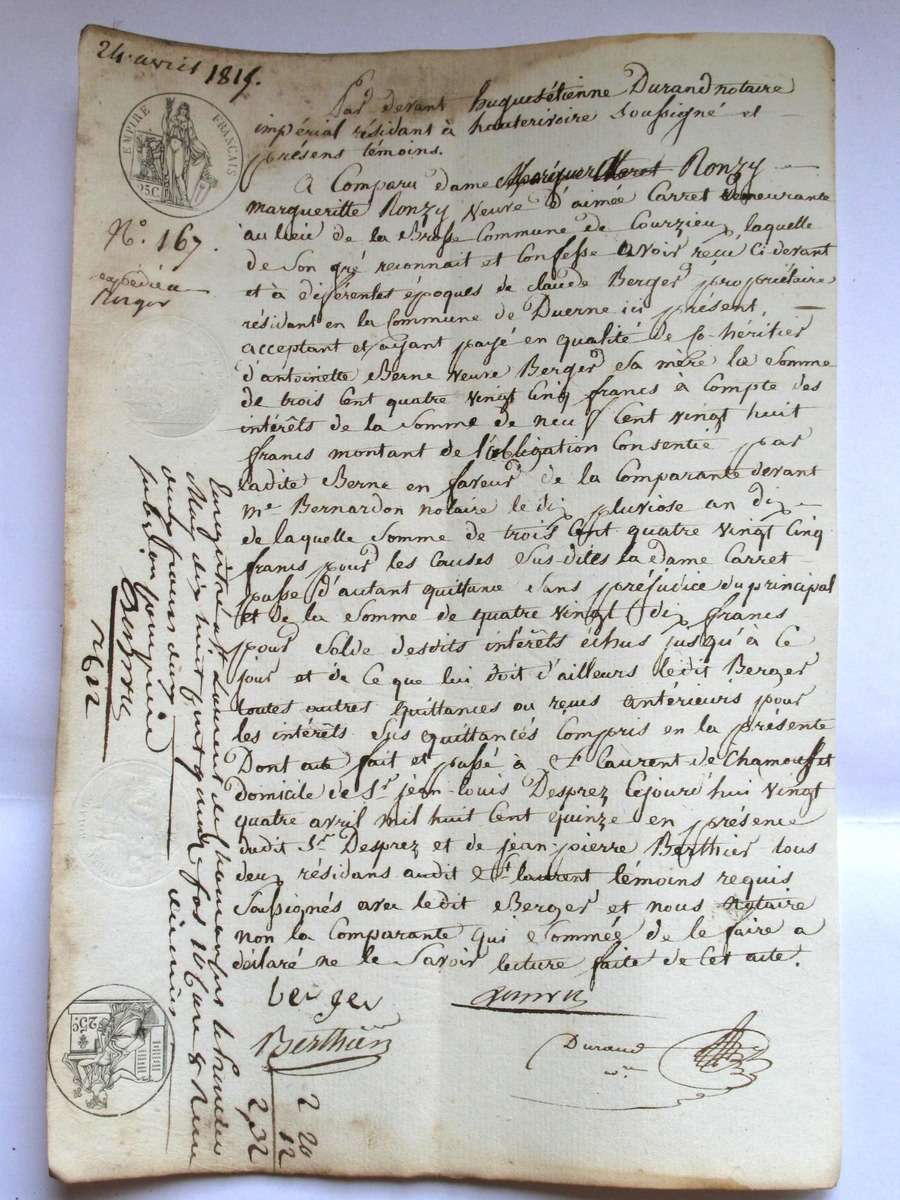 24 avril 1815.
EMPIRE FRANÇAIS
25C
Par devant hugues étienne Durand notaire
impérial résidant à hauterivoire soussigné et
présens témoins.
A Comparu dame Ronzy
margueritte Ronzy Veuve d'aimée Carret demeurante
au lieu de la Brosse Commune de Courzieu, laquelle
de Son gré reconnait et Confesse avoir reçu Ci devant
et à différentes époques de claude Berger propriétaire
résidant en la Commune de Duerne ici présent,
acceptant et ayant payé en qualité de Co-héritier
d'antoinette Berne Veuve Berger Sa mère la Somme
de trois Cent quatre vingt Cinq francs à Compte des
intérêts de la Somme de neuf Cent vingt huit
francs montant de l'obligation Consentie par
ladite Berne en faveur de la Comparante devant
me Bernardon notaire le dix pluviose an dix
de laquelle Somme de trois Cent quatre vingt Cinq
francs pour les Causes Sus-dites la dame Carret
passe d'autant quittance Sans préjudice du principal
et de la Somme de quatre vingt dix francs
pour Solde desdits intérêts échus jusqu'à Ce
jour et de Ce que lui doit d'ailleurs ledit Berger
toutes autres quittances ou reçus antérieurs pour
les intérêts Sus quittancés Compris en la présente
Dont acte fait et passé à St Laurent de Chamousset
domicile de Sr. jean-louis Desprez Cejourd'hui Vingt
quatre avril mil huit Cent quinze en présence
dudit Sr. Desprez et de jean-pierre Berthier tous
deux résidans audit St laurent témoins requis
Soussignés avec ledit Berger et nous notaire
non la Comparante qui Sommée de le faire a
déclaré ne le Savoir lecture faite de Cet acte.
berger
Berthier
Durand
nre
N°. 167.
expédié à
Berger
Enregistré à St Laurent de Chamousset le premier
Mai dix huit cent quinze fos 10
25c.
2 20
2,32